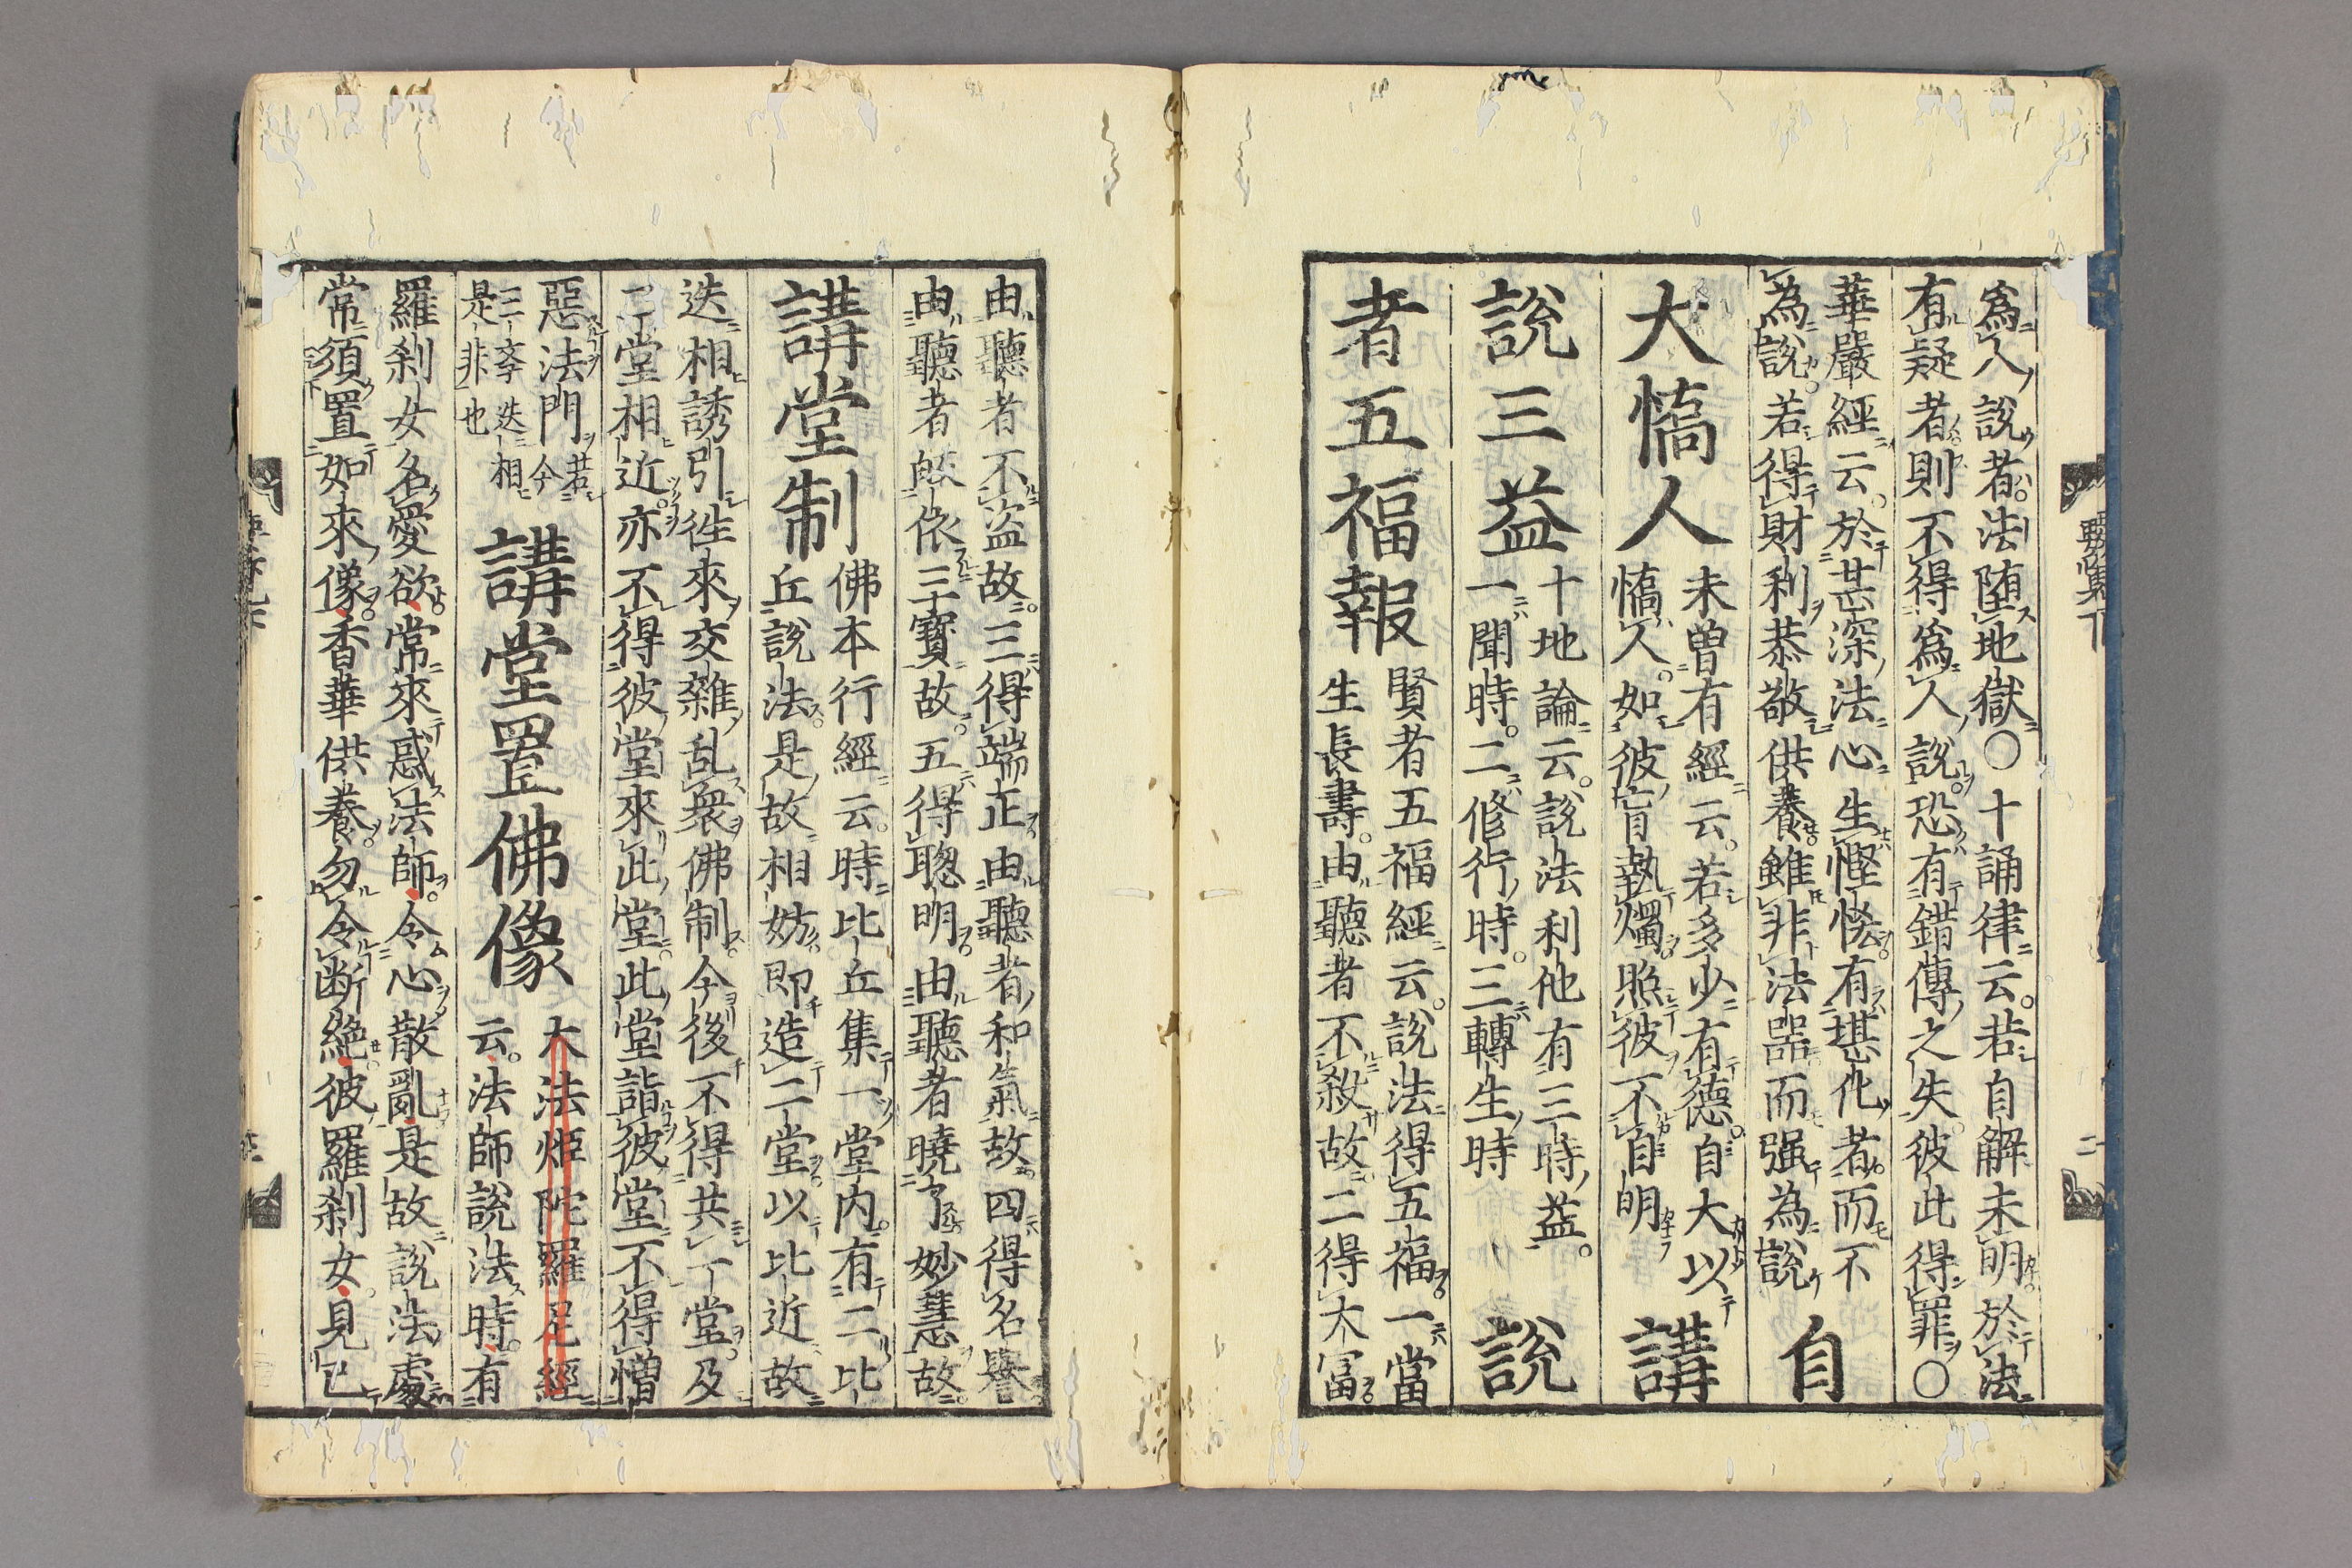 為人說者法堕地獄○十誦律云若自解未明於法
有疑者則不得為人說恐有錯傳之失彼此得罪○
華嚴經云於甚深法心生慳悋有堪化者而不
為說若得財利恭敬供養雖非法器而强為說
自
大憍人
未曽有經云若多少有德自大以
憍人如彼盲執燭照彼不自明
講
說三益
十地論云說法利他有三時益
一聞時二修行時三轉生時
說
者五福報
賢者五福經云說法得五福一當
生長壽由聽者不殺故二得大富
由聽者不盗故三得端正由聽者和氣故四得名譽
由聽者皈依三寶故五得聦明由聽者曉了妙慧故
講堂制
佛本行經云時比丘集一堂内有二比
丘說法是故相妨即造二堂以比近故
迭相誘引徃來交雜乱衆佛制今後不得共一堂及
二堂相近亦不得彼堂來此堂此堂詣彼堂不得憎
惡法門若今
三字迭相
是非也
講堂置佛像
大法炬陀羅尼經
云法師說法時有
羅刹女名愛欲常來惑法師令心散亂是故說法處
常須置如來像香華供養勿令断絶彼羅刹女見已
要集下
二